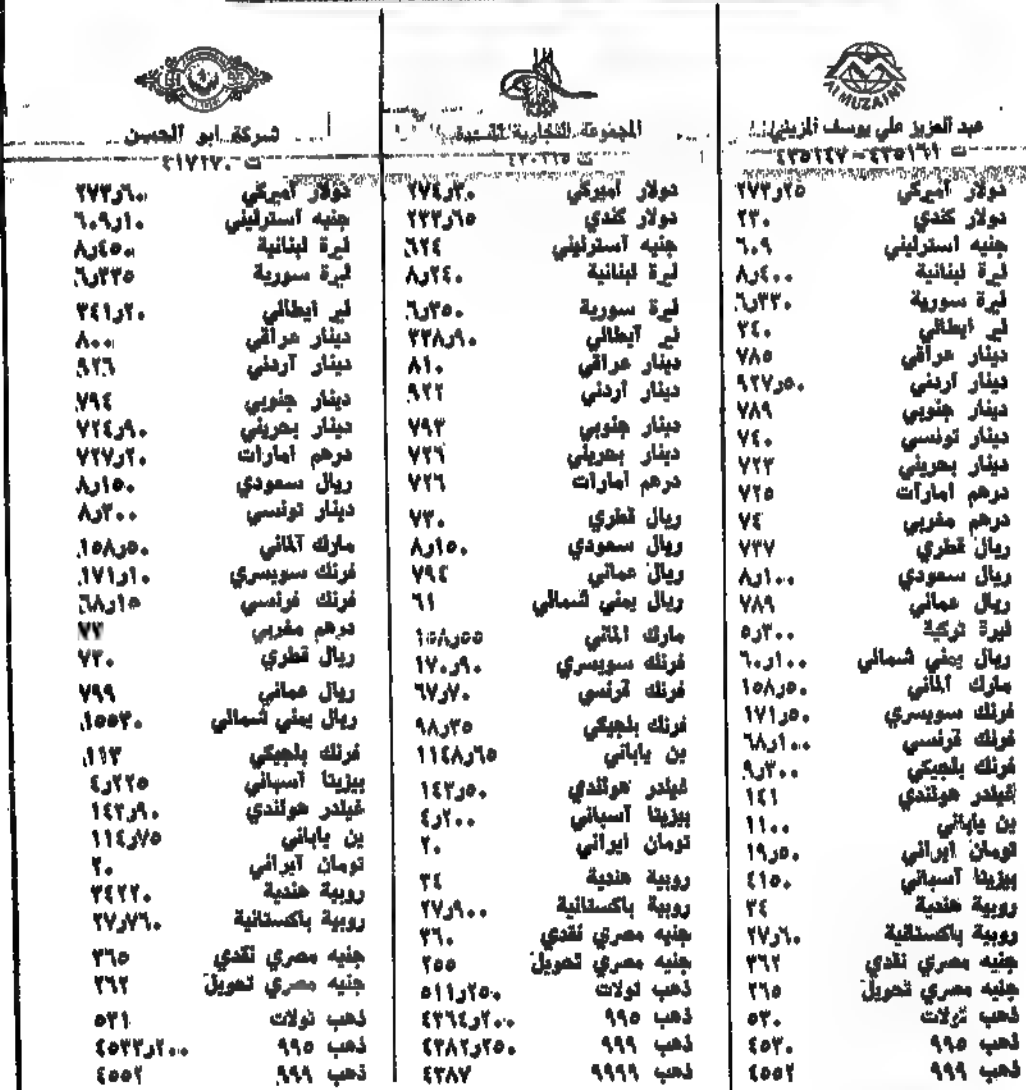 ALMUZAINI
عبد العزيز علي يوسف المزيني
ت ٤٣٥١٦١ - ٤٣٥١٤٧
دولار أميركي ٢٧٣٫٢٥
دولار كندي ٢٣٠
جنيه استرليني ٦٠٩
ليرة لبنانية ٨٫٤٠٠
ليرة سورية ٦٫٣٣٠
لير ايطالي ٣٤٠
دينار عراقي ٧٨٥
دينار أردني ٩٢٧٫٥٠
دينار جنوبي ٧٨٩
دينار تونسي ٧٤٠
دينار بحريني ٧٢٣
درهم امارات ٧٢٥
درهم مغربي ٧٤
ريال قطري ٧٣٧
ريال سعودي ٨٫١٠٠
ريال عماني ٧٨٩
ليرة تركية ٥٫٣٠٠
ريال يمني شمالي ٦٠٫١٠٠
مارك ألماني ١٥٨٫٥٠
فرنك سويسري ١٧١٫٥٠
فرنك فرنسي ٦٨٫١٠٠
فرنك بلجيكي ٩٫٣٠٠
غيلدر هولندي ١٤١
ين ياباني ١١٠٠
تومان ايراني ١٩٫٥٠
بيزيتا أسباني ٤١٥٠
روبية هندية ٣٤
روبية باكستانية ٢٧٫٦٠
جنيه مصري نقدي ٣٦٢
جنيه مصري تحويل ٢٦٥
ذهب تولات ٥٣٠
ذهب ٩٩٥ ٤٥٣٠
ذهب ٩٩٩ ٤٥٥٢
المجموعة التجارية
دولار أميركي ٢٧٤٫٣٠
دولار كندي ٢٣٣٫٦٥
جنيه أسترليني ٦٢٤
ليرة لبنانية ٨٫٢٤٠
ليرة سورية ٦٫٣٥٠
لير آيطالي ٣٣٨٫٩٠
دينار عراقي ٨١٠
دينار أردني ٩٢٢
دينار جنوبي ٧٩٣
دينار بحريني ٧٢٦
درهم امارات ٧٢٦
ريال قطري ٧٣٠
ريال سعودي ٨٫١٥٠
ريال عماني ٧٩٤
ريال يمني شمالي ٦١
مارك الماني ١٥٨٫٥٥
فرنك سويسري ١٧٠٫٩٠
فرنك فرنسي ٦٧٫٧٠
فرنك بلجيكي ٩٨٫٣٥
ين ياباني ١١٤٨٫٦٥
غيلدر هولندي ١٤٣٫٥٠
بيزيتا أسباني ٤٫٢٠٠
تومان ايراني ٢٠
روبية هندية ٣٤
روبية باكستانية ٢٧٫٩٠٠
جنيه مصري نقدي ٣٦٠
جنيه مصري تحويل ٢٥٥
ذهب تولات ٥١١٫٢٥٠
ذهب ٩٩٥ ٤٣٦٤٫٢٠٠
ذهب ٩٩٩ ٤٣٨٢٫٢٥٠
ذهب ٩٩٩٩ ٤٣٨٧
شركة ابو الحسن
ت ٤١٧١٧٠
دولار أميركي ٢٧٣٫٦٠
جنيه أسترليني ٦٠٩٫١٠
ليرة لبنانية ٨٫٤٥٠
ليرة سورية ٦٫٣٣٥
لير ايطالي ٣٤١٫٢٠
دينار عراقي ٨٠٠
دينار أردني ٩٢٦
دينار جنوبي ٧٩٤
دينار بحريني ٧٢٤٫٩٠
درهم امارات ٧٢٧٫٢٠
ريال سعودي ٨٫١٥٠
دينار تونسي ٨٫٣٠٠
مارك ألماني ١٥٨٫٥٠
فرنك سويسري ١٧١٫١٠
فرنك فرنسي ٦٨٫١٥
درهم مغربي
ريال قطري ٧٣٠
ريال عماني ٧٩٩
ريال يمني شمالي ١٥٥٣٠
فرنك بلجيكي ١١٣
بيزيتا أسباني ٤٫٢٢٥
غيلدر هولندي ١٤٣٫٩٠
ين ياباني ١١٤٫٧٥
تومان آيراني ٢٠
روبية هندية ٣٤٢٢٠
روبية باكستانية ٢٧٫٧٦٠
جنيه مصري نقدي ٣٦٥
جنيه مصري تحويل ٢٦٢
ذهب تولات ٥٣١
ذهب ٩٩٥ ٤٥٣٣٫٢٠٠
ذهب ٩٩٩ ٤٥٥٢